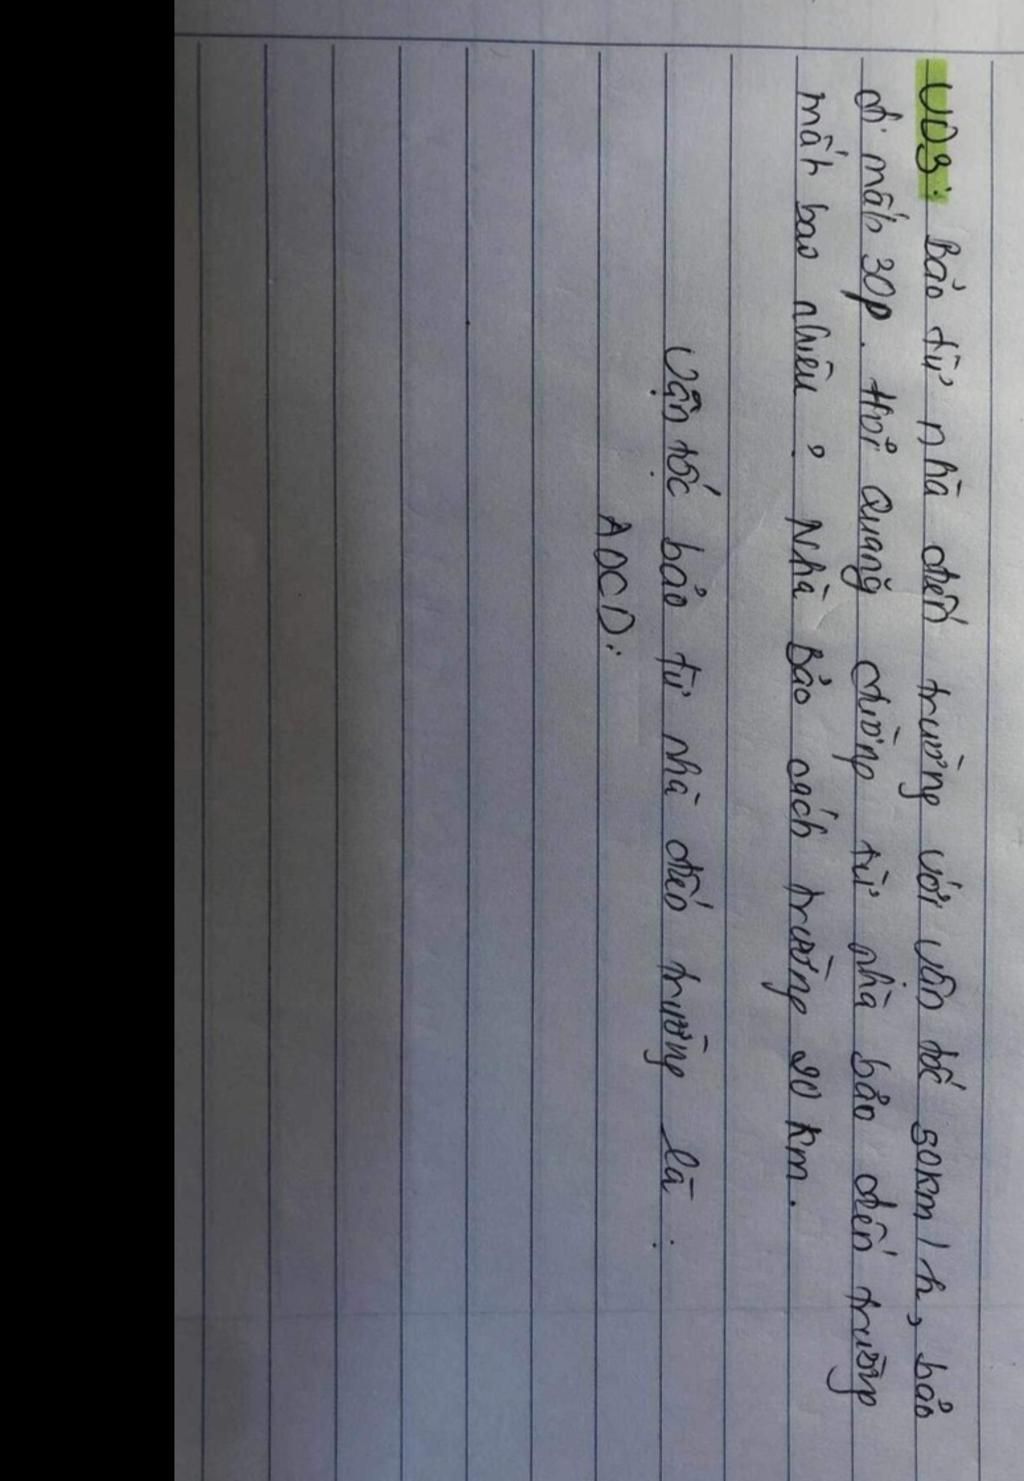 VD3: Bảo từ nhà đến trường với vận tốc 50km/h, bảo
đi mất 30p. Hỏi Quãng đường từ nhà bảo đến trường
mất bao nhiêu? Nhà Bảo cách trường 20 km.
Vận tốc bảo từ nhà đến trường là:
AOCD: